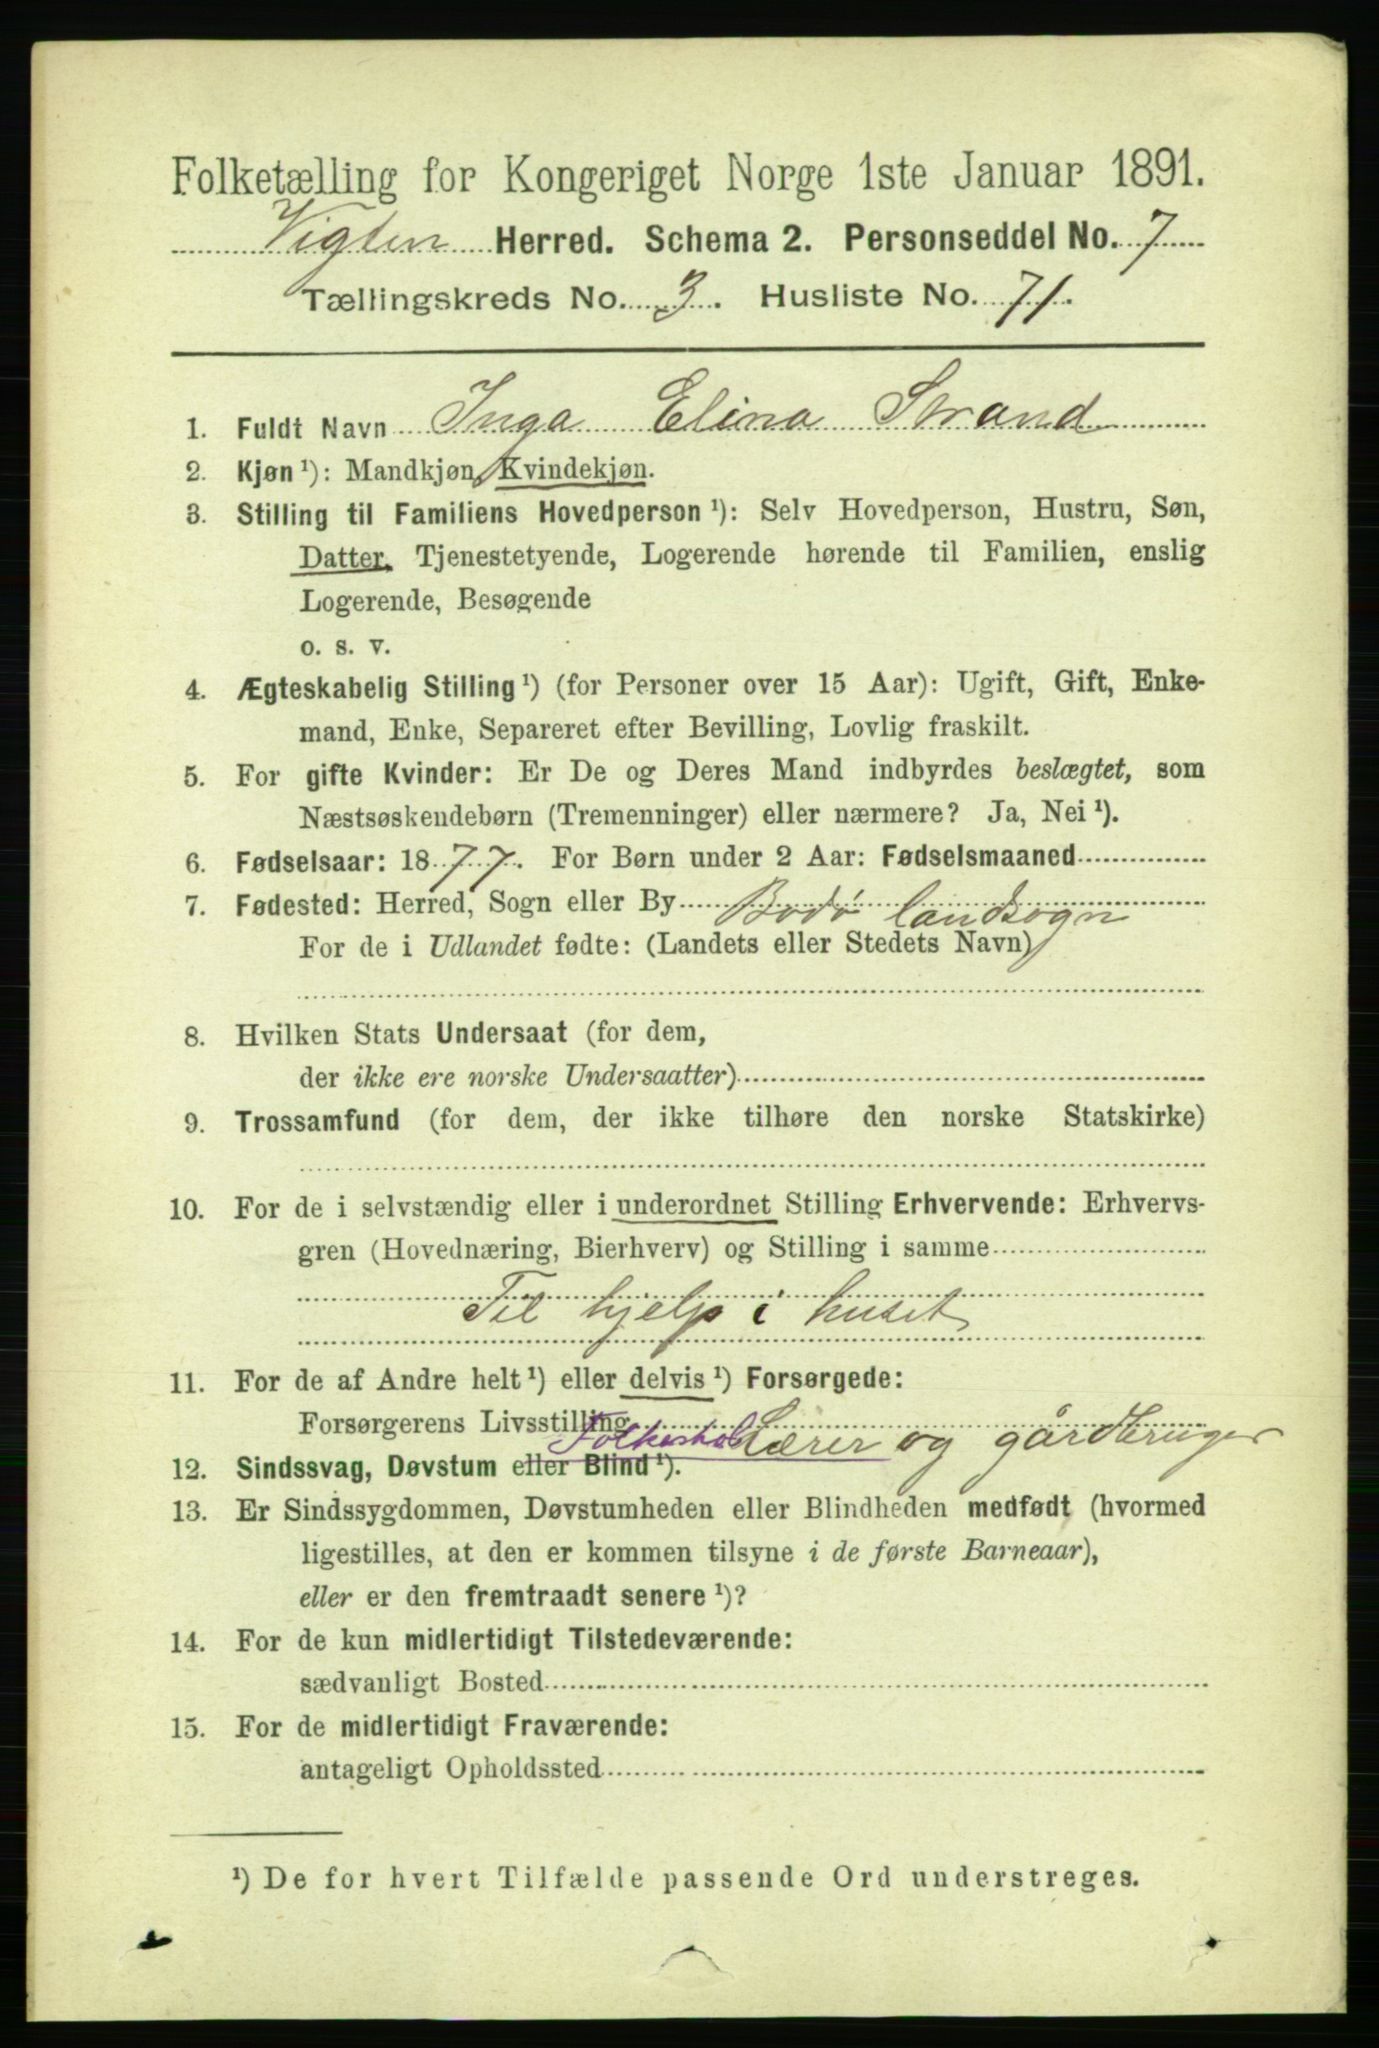 Folketælling for Kongeriget Norge 1ste Januar 1891.
Vigten Herred. Schema 2. Personseddel No. 7
Tællingskreds No. 3. Husliste No. 71.
1. Fuldt Navn Inga Elina Strand
2. Kjøn ¹): Mandkjøn, Kvindekjøn.
3. Stilling til Familiens Hovedperson ¹): Selv Hovedperson, Hustru, Søn,
Datter, Tjenestetyende, Logerende hørende til Familien, enslig
Logerende, Besøgende
o. s. v.
4. Ægteskabelig Stilling ¹) (for Personer over 15 Aar): Ugift, Gift, Enke-
mand, Enke, Separeret efter Bevilling, Lovlig fraskilt.
5. For gifte Kvinder: Er De og Deres Mand indbyrdes beslægtet, som
Næstsøskendebørn (Tremenninger) eller nærmere? Ja, Nei ¹).
6. Fødselsaar: 1877. For Børn under 2 Aar: Fødselsmaaned
7. Fødested: Herred, Sogn eller By Bodø landsogn
For de i Udlandet fødte: (Landets eller Stedets Navn)
8. Hvilken Stats Undersaat (for dem,
der ikke ere norske Undersaatter)
9. Trossamfund (for dem, der ikke tilhøre den norske Statskirke)
10. For de i selvstændig eller i underordnet Stilling Erhvervende: Erhvervs-
gren (Hovednæring, Bierhverv) og Stilling i samme
Til hjelp i huset
11. For de af Andre helt ¹) eller delvis ¹) Forsørgede:
Forsørgerens Livsstilling
Folkeskol Lærer og gårdbruger
12. Sindssvag, Døvstum eller Blind ¹).
13. Er Sindssygdommen, Døvstumheden eller Blindheden medfødt (hvormed
ligestilles, at den er kommen tilsyne i de første Barneaar),
eller er den fremtraadt senere ¹)?
14. For de kun midlertidigt Tilstedeværende:
sædvanligt Bosted
15. For de midlertidigt Fraværende:
antageligt Opholdssted
¹) De for hvert Tilfælde passende Ord understreges.